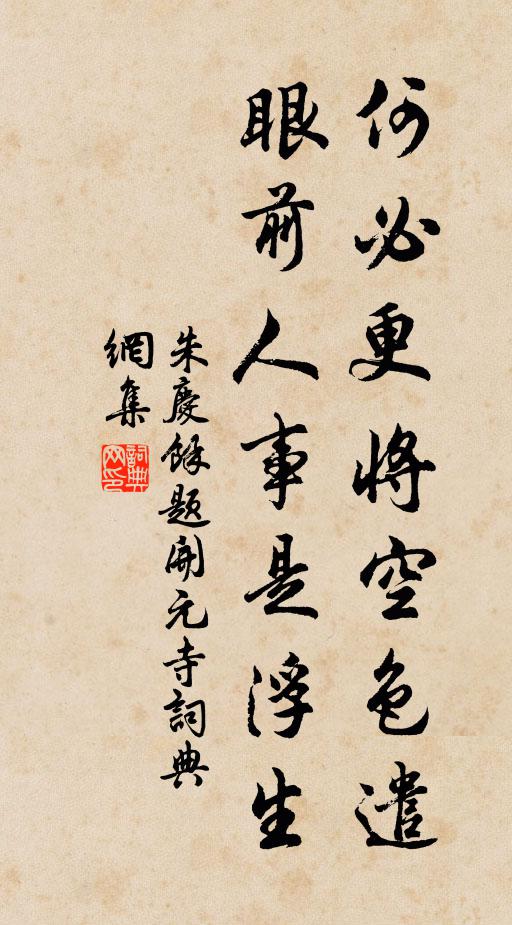 何必更將空色遣
眼前人事是浮生
朱慶餘題開元寺詞典
網集
詞典
网印